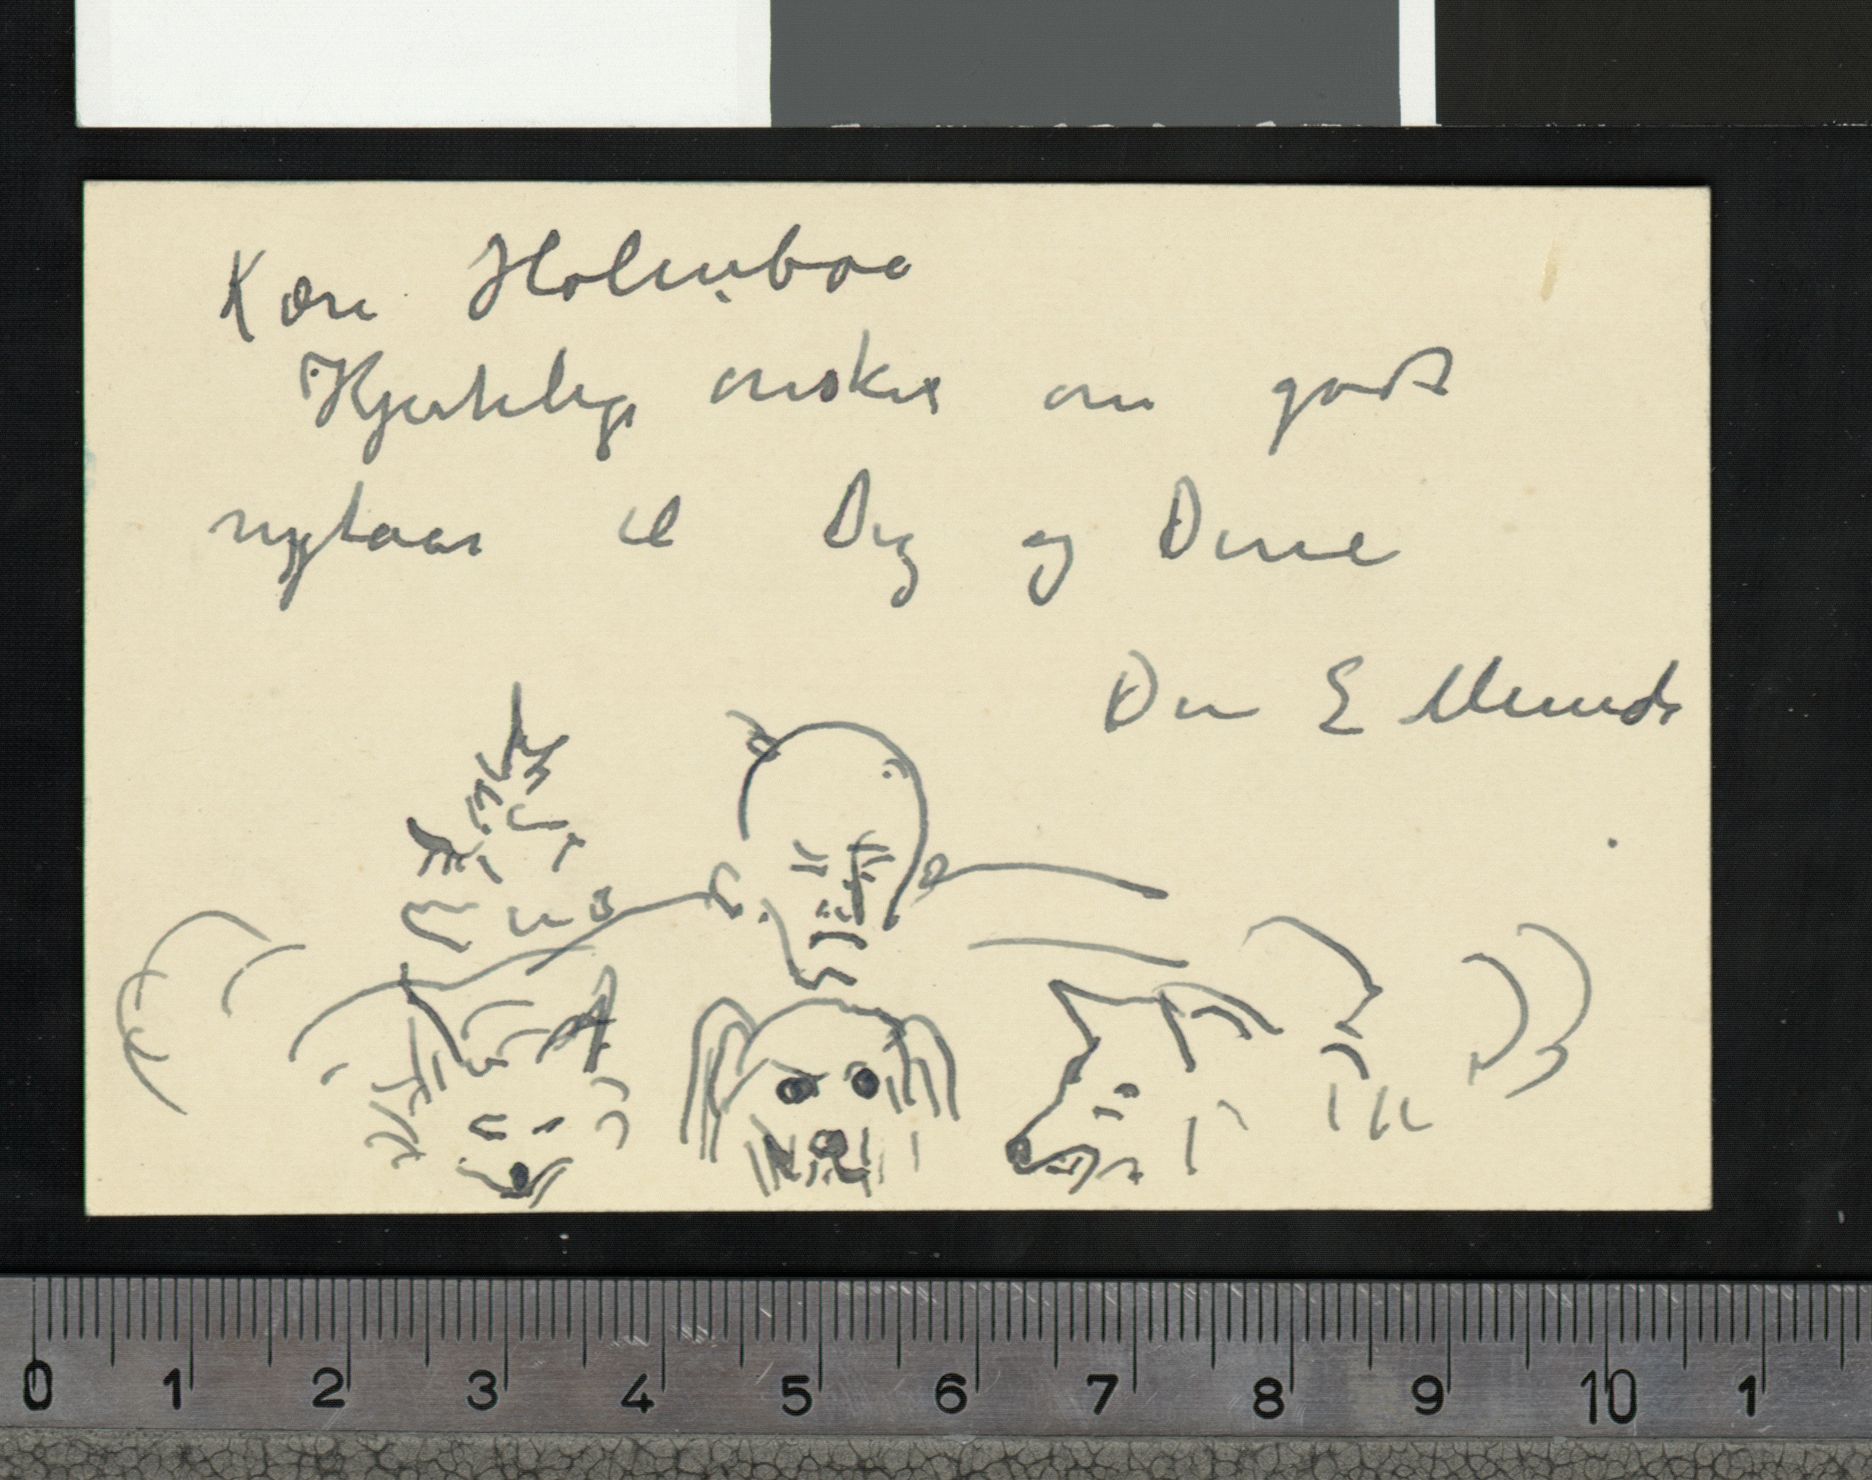 Kære Holmboe
Hjertelig ønsker om godt
nytaar til Dig og Dine
Din E Munch
0 1 2 3 4 5 6 7 8 9 10 1